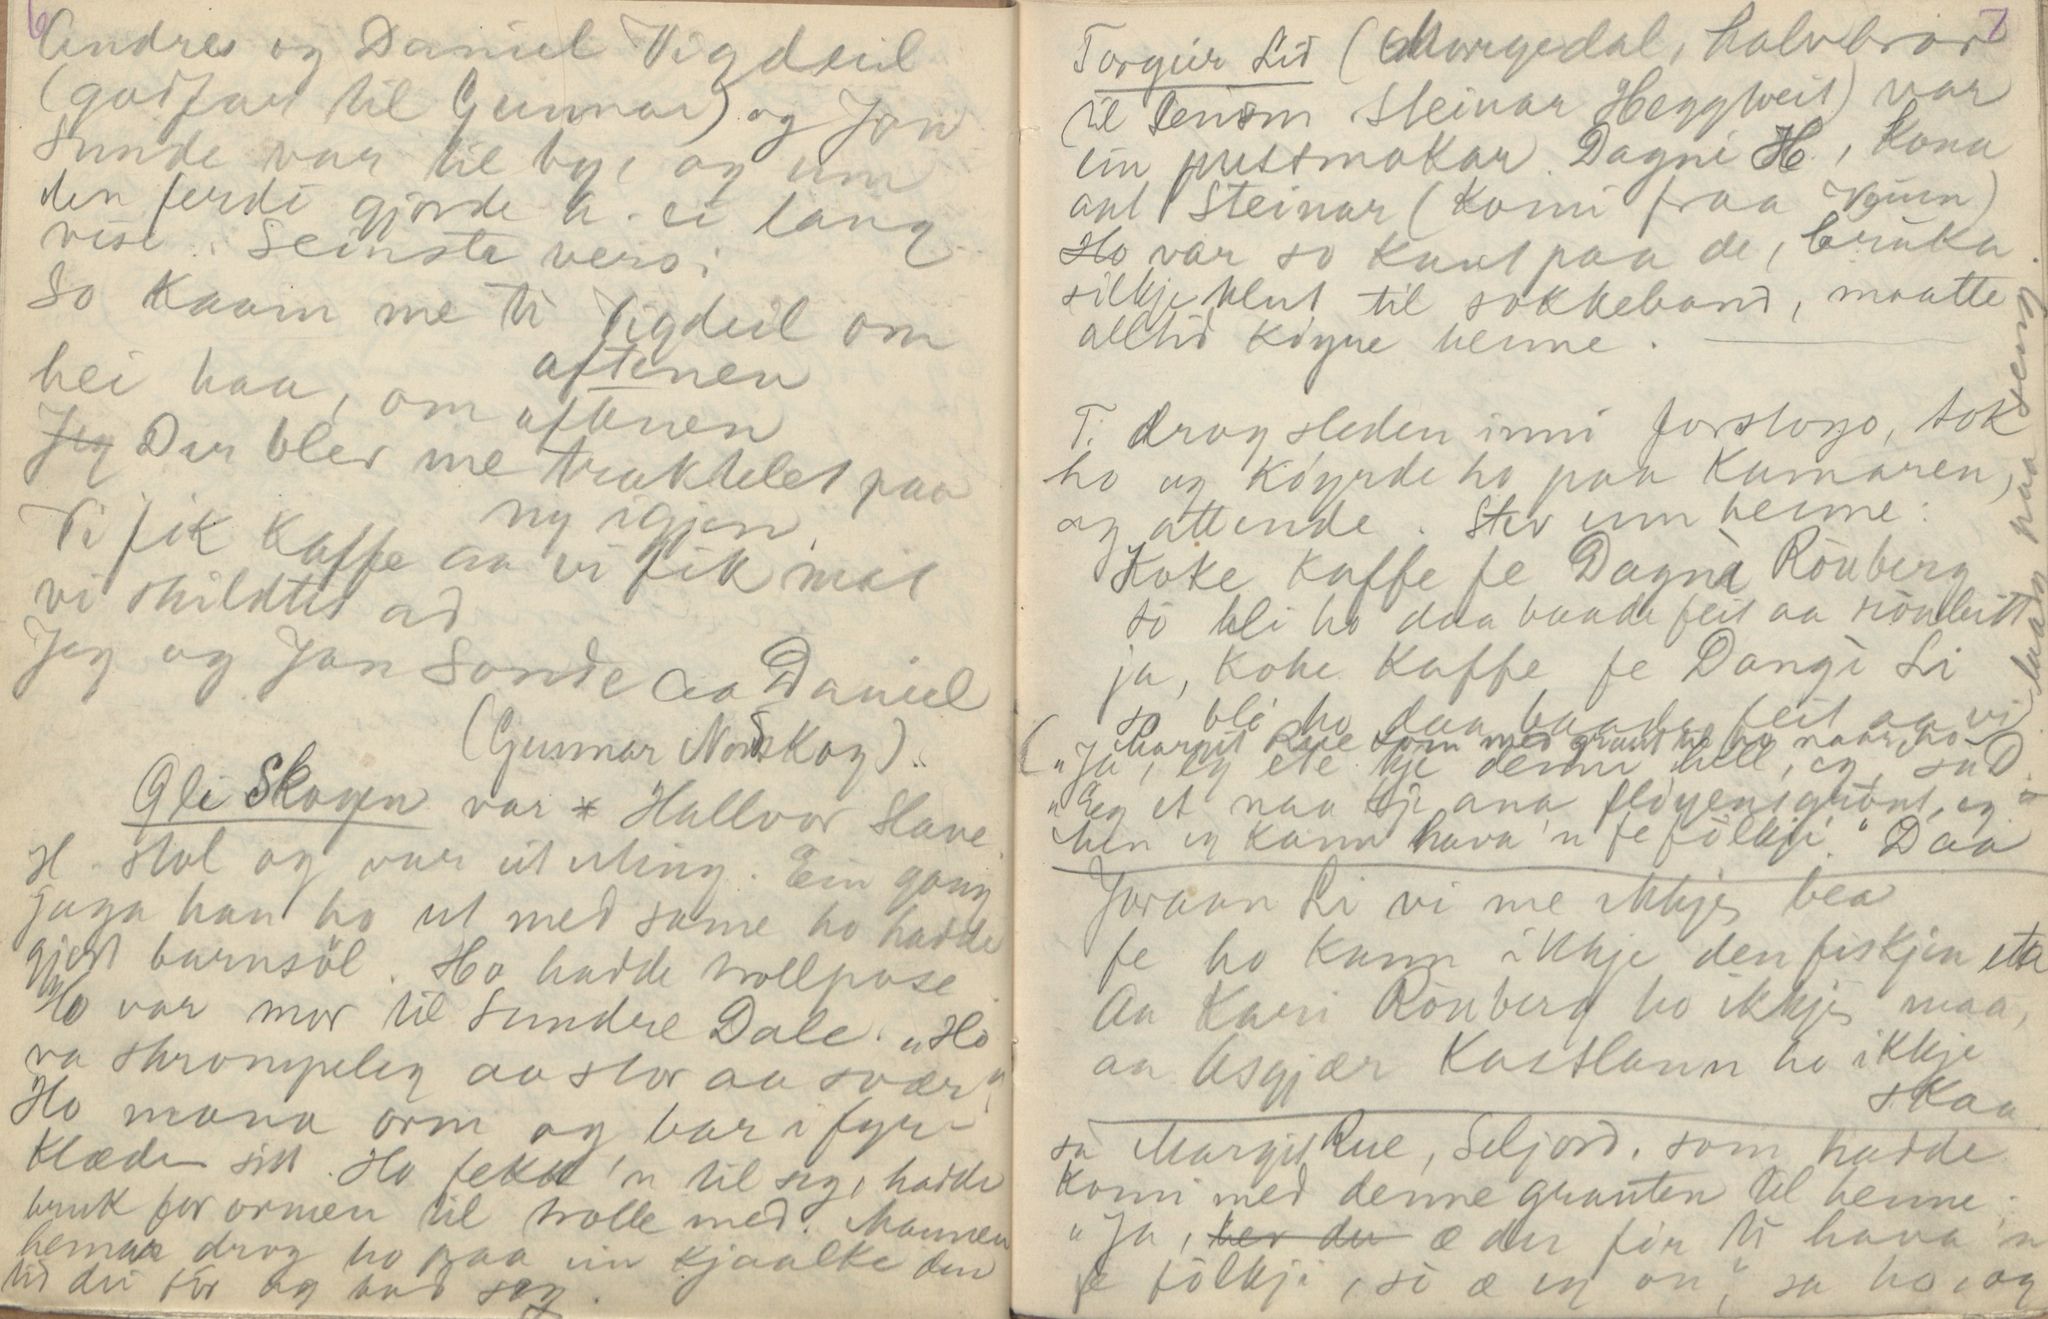 6
Andres og Daniel Vigdeil
(godfar til Gunnar) og Jon
Sunde var til by, og um
den ferdi gjorde h. ei lang
vise. Seinste vers:
So kaam me ti Vigdeil om
aftenen
hei haa, om aftenen
Jeg Der blev me traktelet paa
ny igjen,
Vi fik kaffe aa vi fik mat
vi skildtes ad
Jeg og Jon Sonde aa Daniel
(Gunnar Nordskog)
Gli Skogen var * Hallvor Have
H. stol og var ut Ming. Ein gong
jaga han ho ut med same ho hadde
gjort barnsöl. Ho hadde trollpose
Ho var mor til Sundre Dale. "Ho
va skrompeleg aa stor aa svær,"
Ho mana orm og bar i fyr-
klæde sitt. Ho fekk 'n til seg, hadde
bruk for ormen til trolle med. Mannen
hennar drog ho paa ein kjaalke den
tid dei for og bad seg.
7
Torgeir Lid (Morgedal, halvbror
til lensm Steinar Heggtveit) var
ein prestmakar. Dagni H., kona
aat Steinar (komi fraa
Ho var so kaut paa de, bruka
silkjeklut til sokkeband, maatte
alltid köyre henne.
T. drog sleden inni forstogo, tok
ho og köyrde ho paa kamaren,
og attende. Stev um henne:
Koke kaffe fe Dagni Rönberg
so bli ho daa baade feit aa
ja, koke kaffe fe Dangi Li
so bli ho daa baade feit aa vi
laag paa seng.
Margit Rue kom med graut til ho naar ho
("Ja, eg ete kje denne hell, eg, sa D.
"Eg et naa kje ana flöyensgraut, eg
Men eg kann hava 'n fe fölkji." Daa
Joraan Li vi me ikkje bea
fe ho kann ikkje den fiskjen eta
Aa Kari Rönberg ho ikkje maa,
aa Asgjær Kastlann ho ikkje
skaa
sa Margit Rue, Seljord. som hadde
komi med denne grauten til henne:
"Ja, her du æ der för ti hava 'n
fe fölkji, so æ eg on," sa ho, og